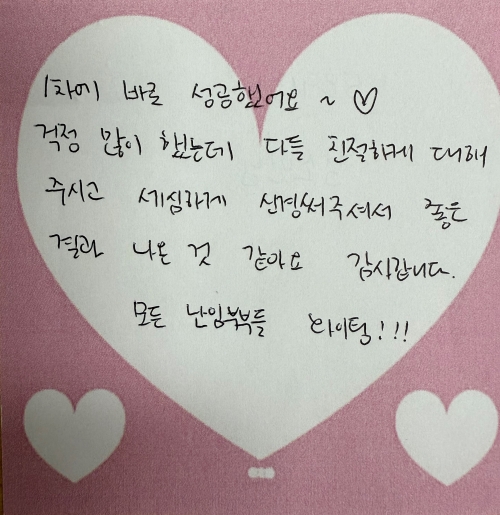 1차에 바로 성공했어요 ~ ♡
걱정 많이 했는데 다들 친절하게 대해
주시고 세심하게 신경써주셔서 좋은
결과 나온 것 같아요 감사합니다.
모든 난임부부들 화이팅!!!